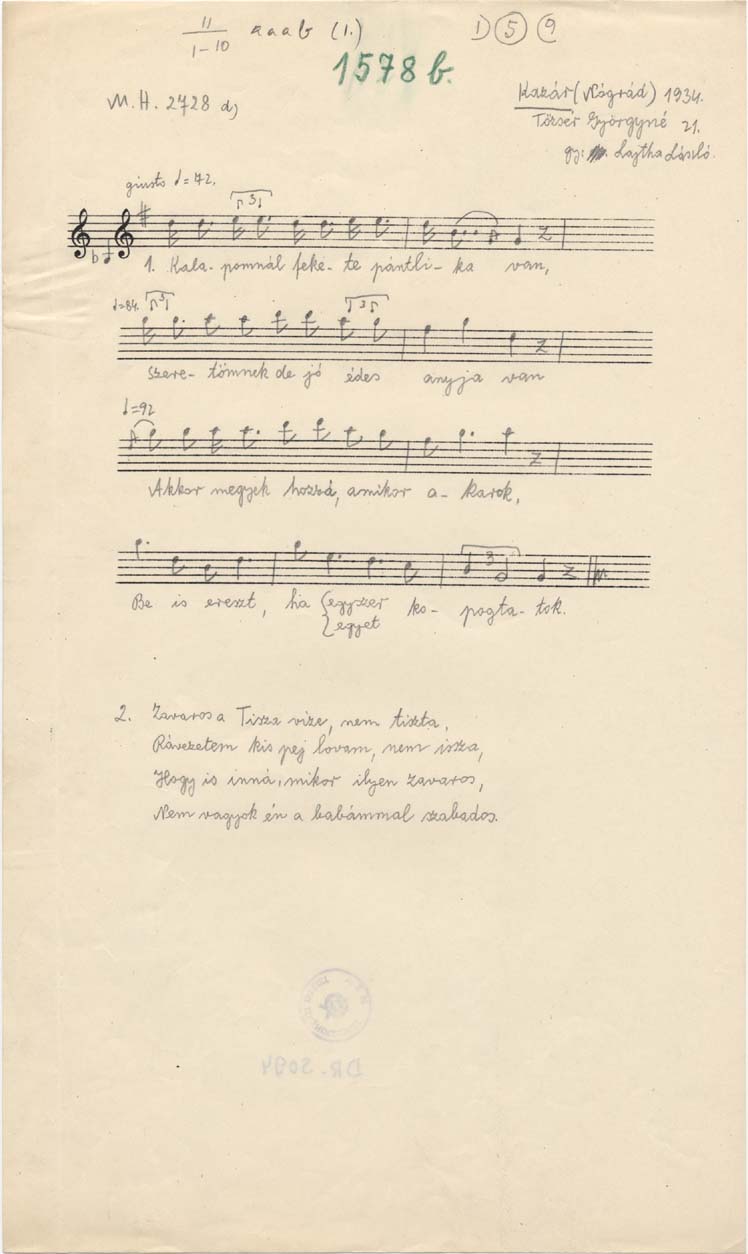 11
1-10
a a a b (1.)
1) 5 9
1578 b.
M. H. 2728 d)
Kazár (Nógrád) 1934.
Tőzsér Györgyné 21.
gy: Lajtha László.
giusto = 72.
3
1. Kala- pomnál feke- te pántli- ka van,
=84. 3 3
szere- tömnek de jó édes anyja van
=92
Akkor megyek hozzá, amikor a- karok,
3
Be is ereszt, ha {egyszer ko- pogta- tok.
egyet
2. Zavaros a Tisza vize, nem tiszta,
Rávezetem kis pej lovam, nem issza,
Hogy is inná, mikor ilyen zavaros,
Nem vagyok én a babámmal szabados.
DR. 5094